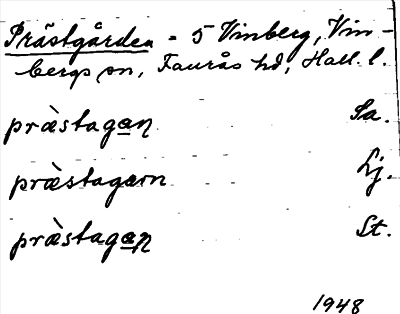 Prästgården = 5 Vinberg, Vin-
bergs sn, Faurås hd, Hall. l.
præ̀stagan Sa.
præ̀stagarn Lj.
præ̀stagan St.
1948